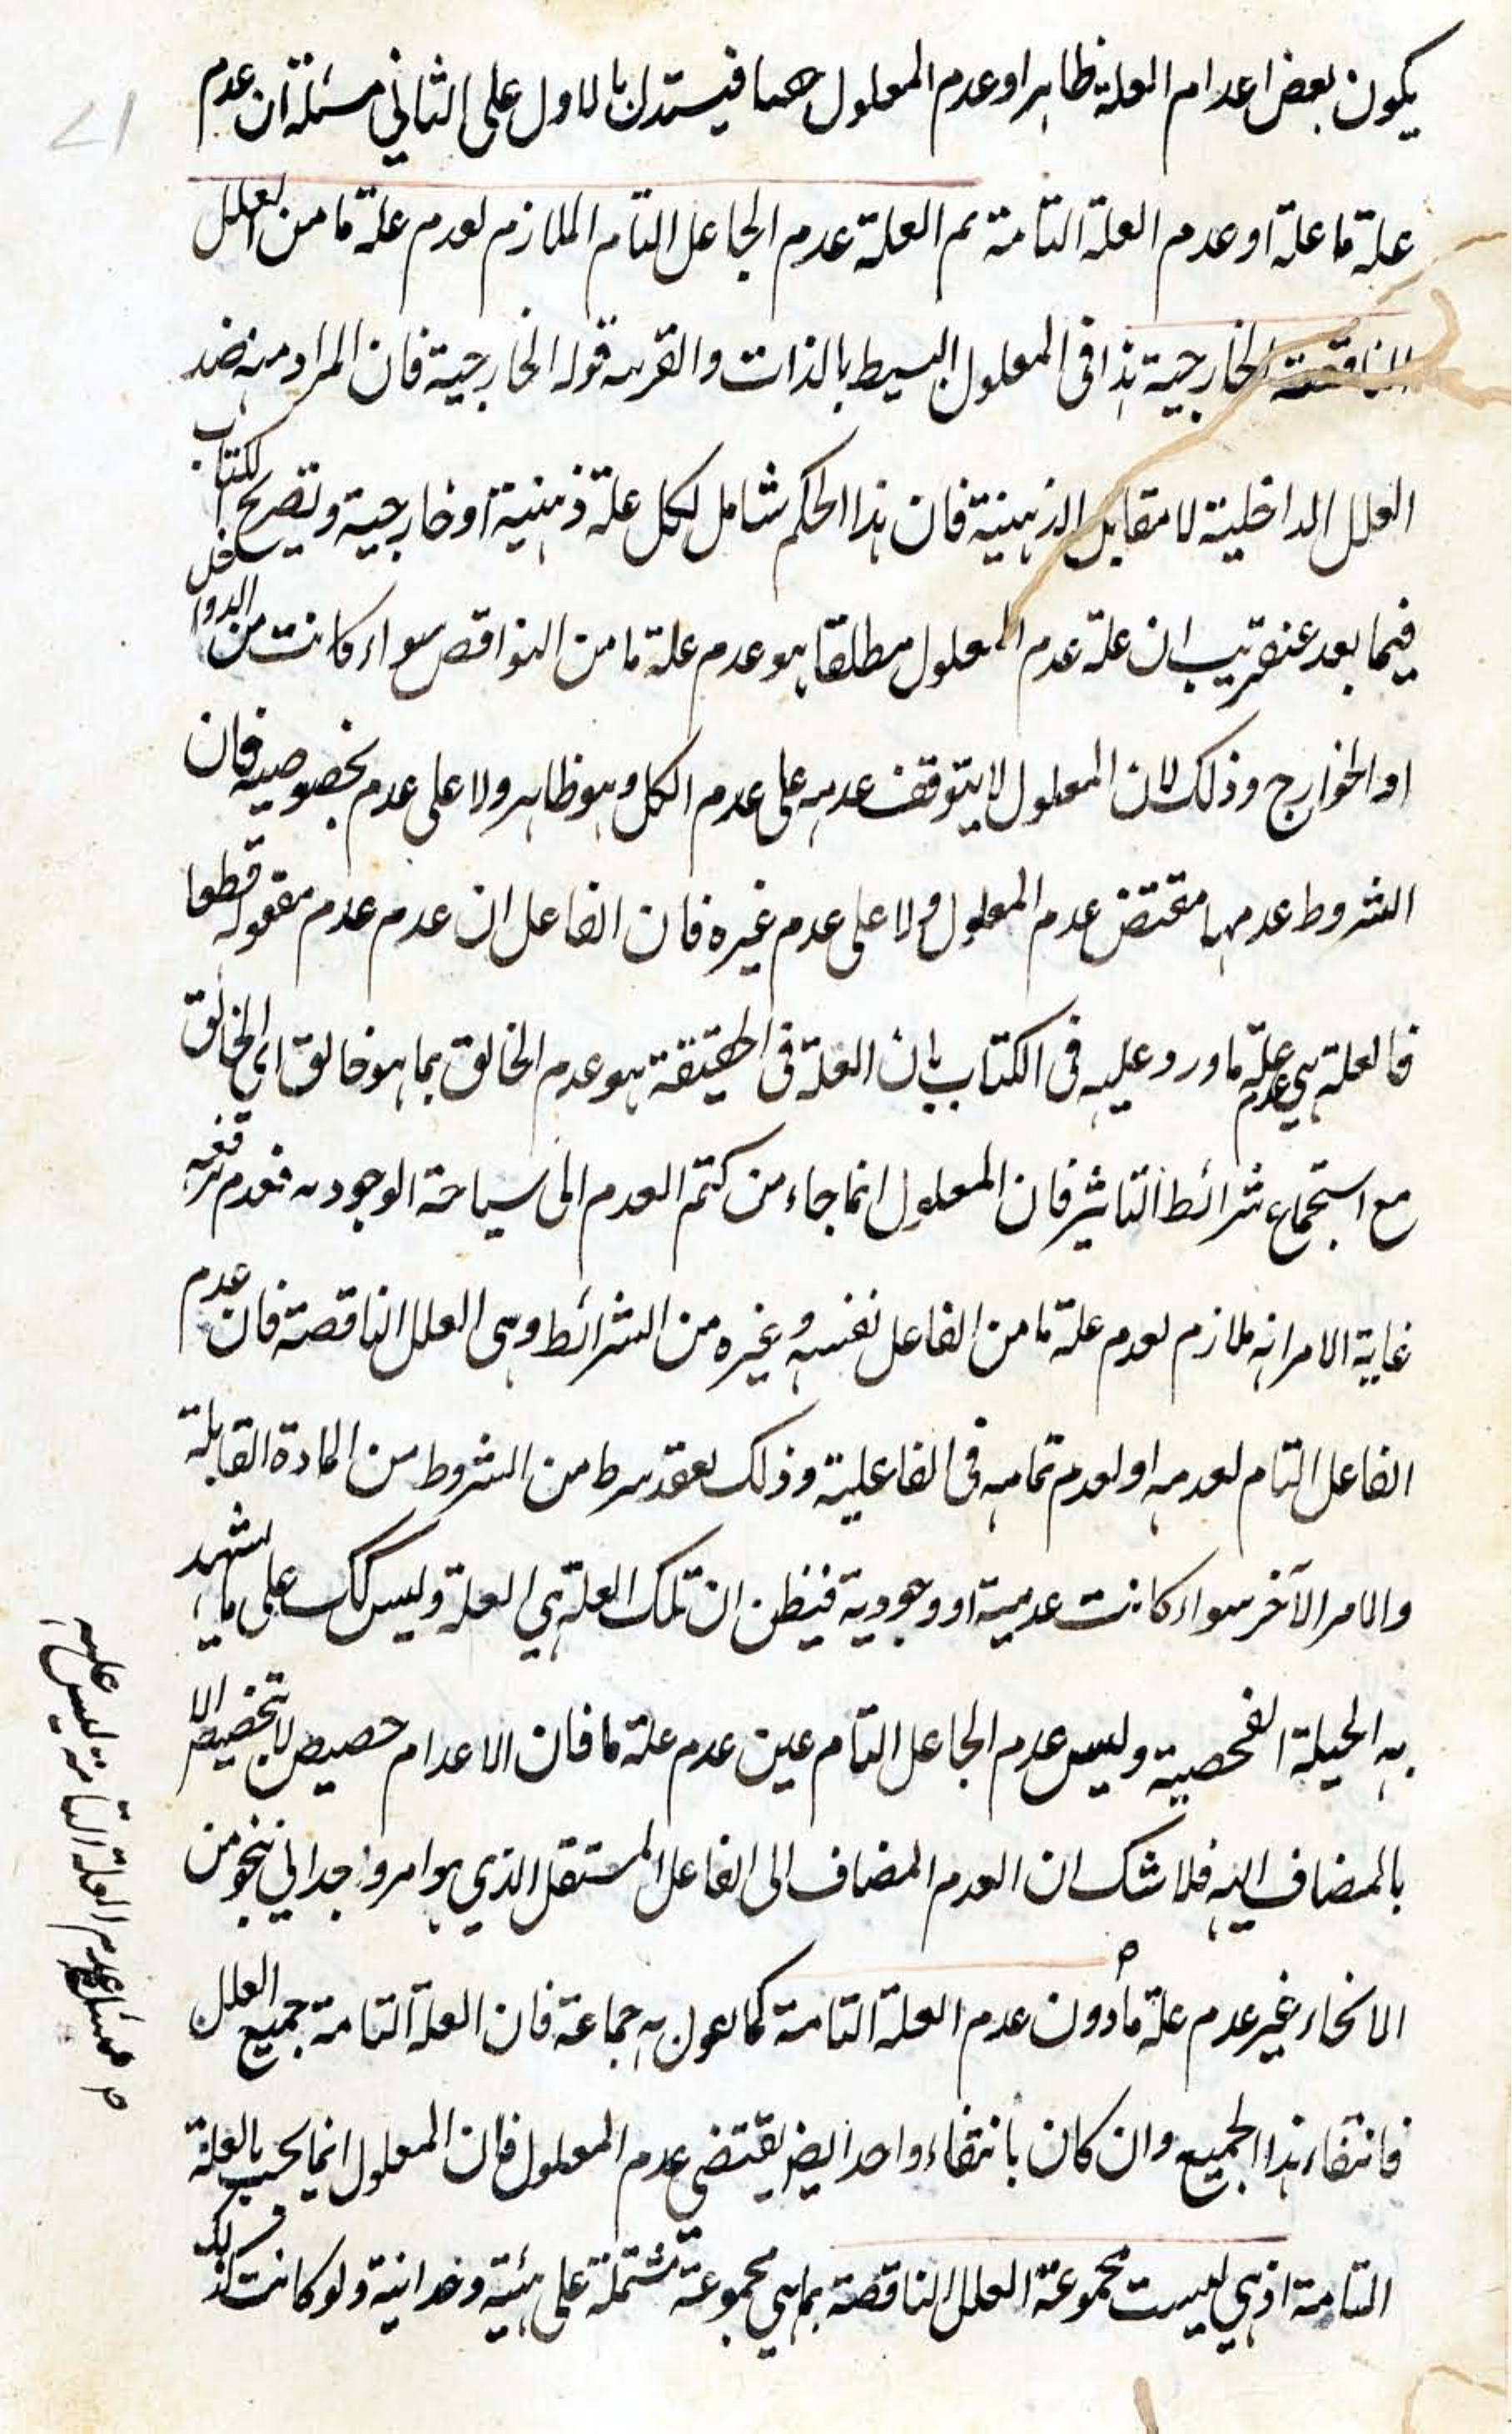 يكون بعض اعدام العلة ظاهرا وعدم المعلول فيستدل بالاول على الثاني مسئلة ان عدم
علة ما علة او عدم العلة التامة ثم العلة عدم الجاعل التام الملازم لعدم علة ما من العلل
الناقصة الخارجية هذا في المعلول البسيط بالذات والقرينة قوله الخارجية فان المراد منه ضد
العلل الداخلية لا مقابل الذهنية فان هذا الحكم شامل لكل علة ذهنية او خارجية وتصريح الكتاب
فيما بعد عنقريب ان علة عدم المعلول مطلقا هو عدم علة ما من النواقص سواء كانت من الدواخل
او الخوارج وذلك لان المعلول لا يتوقف عدمه على عدم الكل وهو ظاهر ولا على عدم بخصوصيه فان
الشروط عدمها مقتض عدم المعلول ولا على عدم غيره فان الفاعل ان عدم عدم مفعوله قطعا
فالعلة هي عدم علة ما ورد عليه في الكتاب بان العلة في الحقيقة هو عدم الخالق بما هو خالق اى الخالق
مع استجماع شرائط التاثير فان المعلول انما جاء من كتم العدم الى ساحة الوجود به فعدم
غاية الامر انه ملازم لعدم علة ما من الفاعل نفسه وغيره من الشرائط وهى العلل الناقصة فان عدم
الفاعل التام لعدمه او لعدم تمامه في الفاعلية وذلك لفقد شرط من الشروط من المادة القابلة
والامر الآخر سواء كانت عدمية او وجودية فيظن ان تلك العلة هي العلة وليس كك على ما يشهد
به الحيلة الفحصية وليس عدم الجاعل التام عين عدم علة ما فان الاعدام حصيص لا بتخصيص الا
بالمضاف اليه فلا شك ان العدم المضاف الى الفاعل المستقل الذي هو امر وحداني نحو من
الانحاء غير عدم علة ما دون عدم العلة التامة كما يقول به جماعة فان العلة التامة جميع العلل
فانتفاء هذا الجميع وان كان بانتفاء واحد ايضا يقتضي عدم المعلول فان المعلول انما يجب بالعلة
التامة اذ هي ليست مجموعة العلل الناقصة بما هي مجموعة مشتملة على هيئة وحدانية ولو كانت كذلك
عدم العلة التامة ليس علية